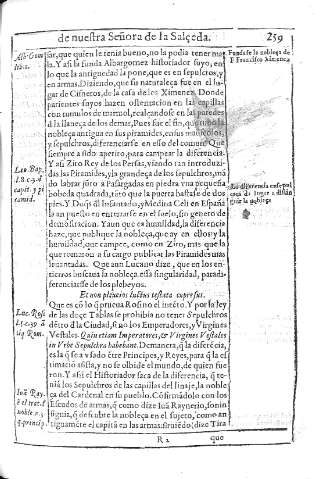 de nuestra Señora de la Salceda. 259
sar, que quien le tenia bueno, no la podia tener mala.
Y assi la funda Albargomez historiador suyo, en
lo que la antiguedad la pone, que es en sepulcros, y
en armas. Diziendo, que su naturaleza fue en el lugar
de Cisneros, de la casa de los Ximenez. Donde
parientes suyos hazen ostentacion en las capillas
con tumulos de marmol, realçandose en las paredes
a la llaneça de los demas, Pues fue el fin, q̃ tubo la
nobleça antigua en sus piramides, en sus
y sepulcros, diferenciarse en esso del comun Que
siempre a sido apetito, para campear la diferencia.
Y assi Ziro Rey de los Persas, viendo tan introduzidas
las Piramides, y la grandeça de los sepulcros, mãdo
labrar para en piedra vna pequeña
boboda quadrada, sino que la puerta hasta de dos
pies. Y Duq̃s dl Infantado, y Medina Celi en España
vsan pueblo en enterrarse en el suelo, sin genero de
demostracion. Y aun que es humildad, la diferencia
haze, que publique la nobleça, que ay en ellos y la
humildad, que campee, como en Ziro, mas que la
que remataron a su cargo publicar las Piramides mas
leuantadas. Que aun Lucano dize, que en los entierros
buscaua la nobleça esta singularidad, para diferenciarse
de los plebeyos.
Et non plebeios luctus testata cupressus.
Que es cõ lo q̃ prueua Rosino el inẽto. Y por la ley
de las doçe Tablas se prohibia no tener Sepulcros
dẽtro d la Ciudad, si no los Emperadores, y Virgines
Vestales. Quin etiam Imperatores, & Virgines Vestales
in Vrbe Sepulchra habebant. Demanera, q̃ la diferẽcia,
es la q̃ sea vsado ẽtre Principes, y Reyes, para q̃ la estimacio
assista, y no se olbide el mundo, de quien fueron.
Y assi el Historiador saca de la diferencia, q̃ tenia
los Sepulcros de las capillas del linaje, la nobleça
del Cardenal en su pueblo. Cõfirmãdolo con los
Escudos de armas, q̃ como dize Iuã Raynerio, son insignia,
q̃ descubre la nobleça en el sujeto, como antiguamẽte
el capitã en las armas: siruiẽdo (dize Tira
R 2 que
Fundase la nobleça de
F. Francisco Ximenez
La diferencia
nobleça
Alb. Gom
Luc. Rosi
Iuã Ray.
noble